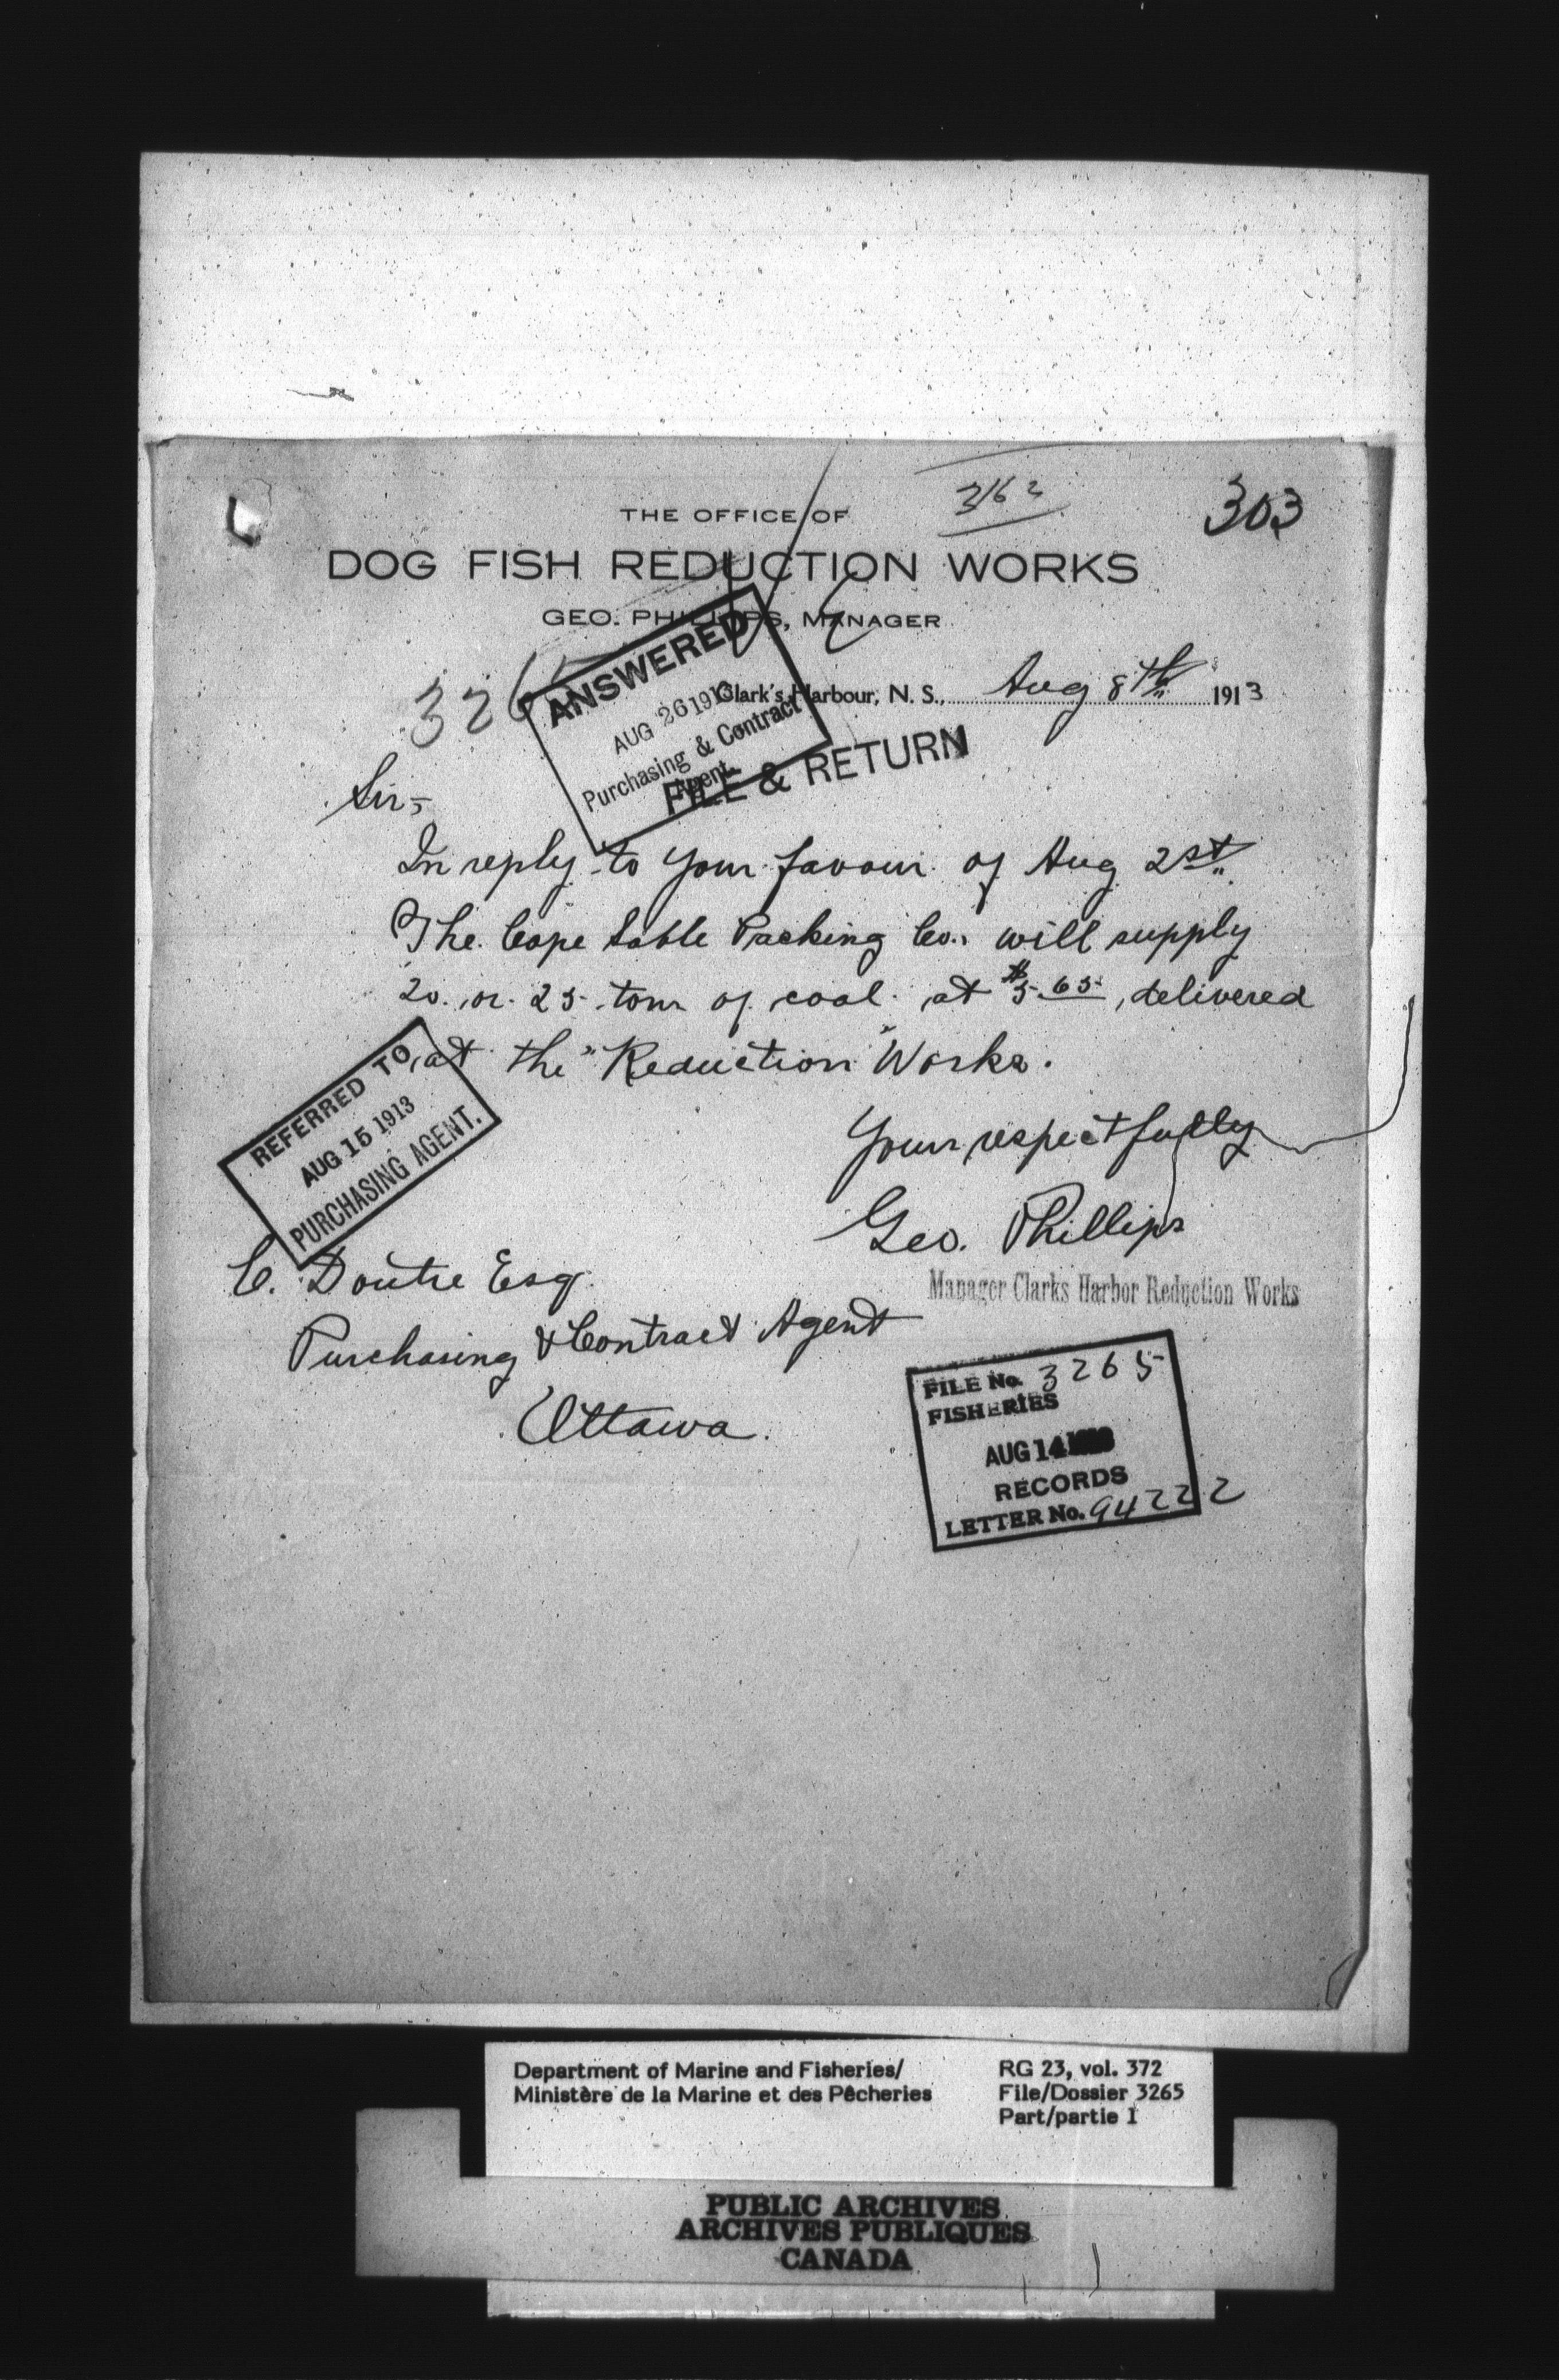 303
THE OFFICE OF
DOG FISH REDUCTION WORKS
GEO. PHILLIPS, MANAGER
Clark's Harbour, N. S., Aug 8th 1913
ANSWERED
AUG 26 1913
Purchasing & Contract
Agent
FILE & RETURN
Sir,-
In reply to your favour of Aug 2st.
The Cape Sable Packing Co., will supply
20 or 25 tons of coal at $5.65, delivered
at the "Reduction" Works.
REFERRED TO
AUG 15 1913
PURCHASING AGENT.
Yours respectfully
Geo. Phillips
Manager Clarks Harbor Reduction Works
C. Doutre Esq.
Purchasing & Contract Agent
Ottawa.
FILE No. 3265
FISHERIES
AUG 14
RECORDS
LETTER No. 94222
Department of Marine and Fisheries/
Ministère de la Marine et des Pêcheries
RG 23, vol. 372
File/Dossier 3265
Part/partie 1
PUBLIC ARCHIVES
ARCHIVES PUBLIQUES
CANADA